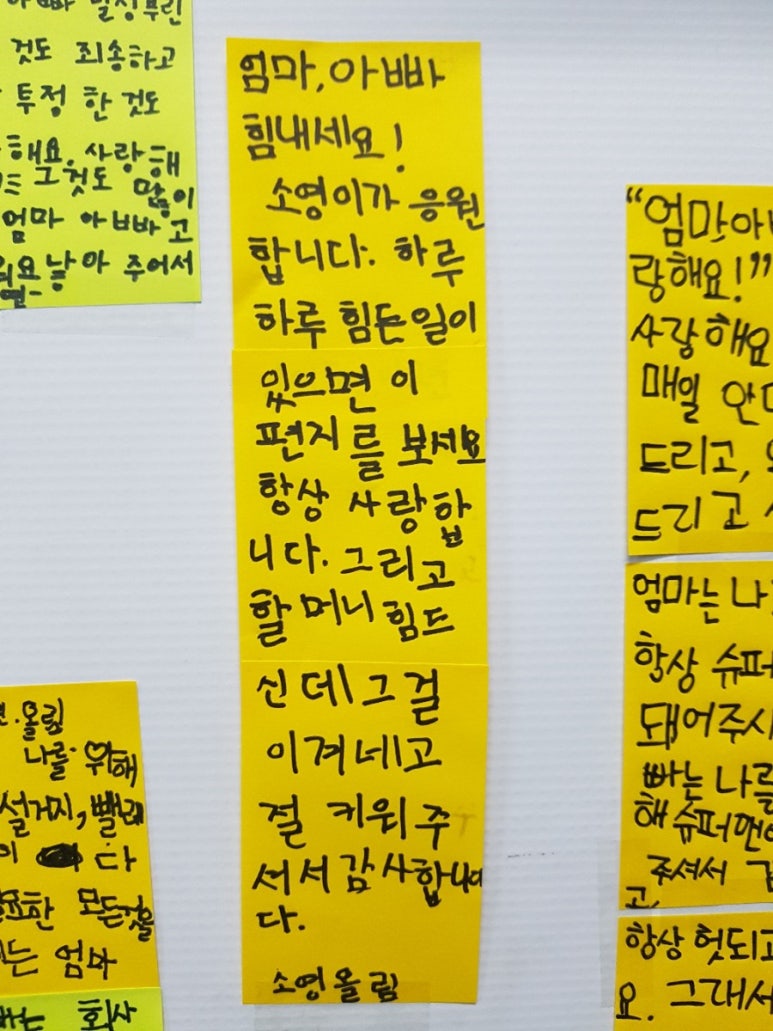 것도 죄송하고
투정 한 것도
해요. 사랑해
그것도 많이
엄마 아빠 고
낳아 주어서
엄마, 아빠
힘내세요!
소영이가 응원
합니다. 하루
하루 힘든일이
있으면 이
편지를 보세요
항상 사랑합
니다. 그리고
할머니 힘드
신데 그걸
이겨네고
절 키워주
셔서 감사합니
다.
소영올림
올림
나를 위해
설거지, 빨래
다
모든것을
는 엄마
회사
“엄마아
랑해요!”
사랑해요
매일 안
드리고,
드리고
엄마는 나
항상 슈퍼
돼어주시
빠는 나를
해 슈퍼맨
주셔서
고,
항상 헛되고
요. 그래서